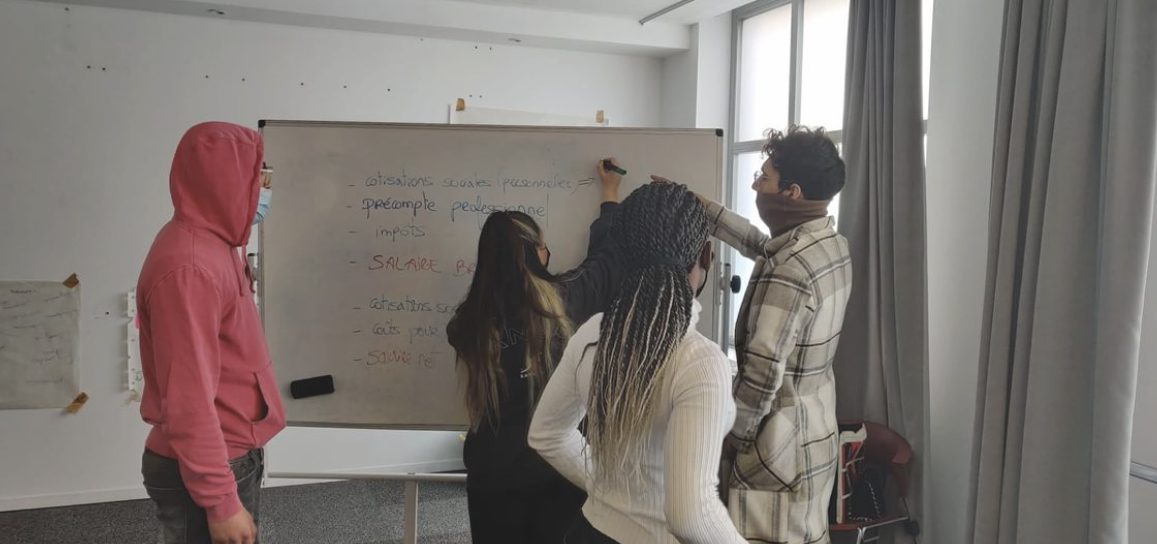 - cotisations sociales (personnelles) =
- précompte professionnel
- impôts
- SALAIRE BR
- cotisations so
- coûts pour
- SALAIRE net